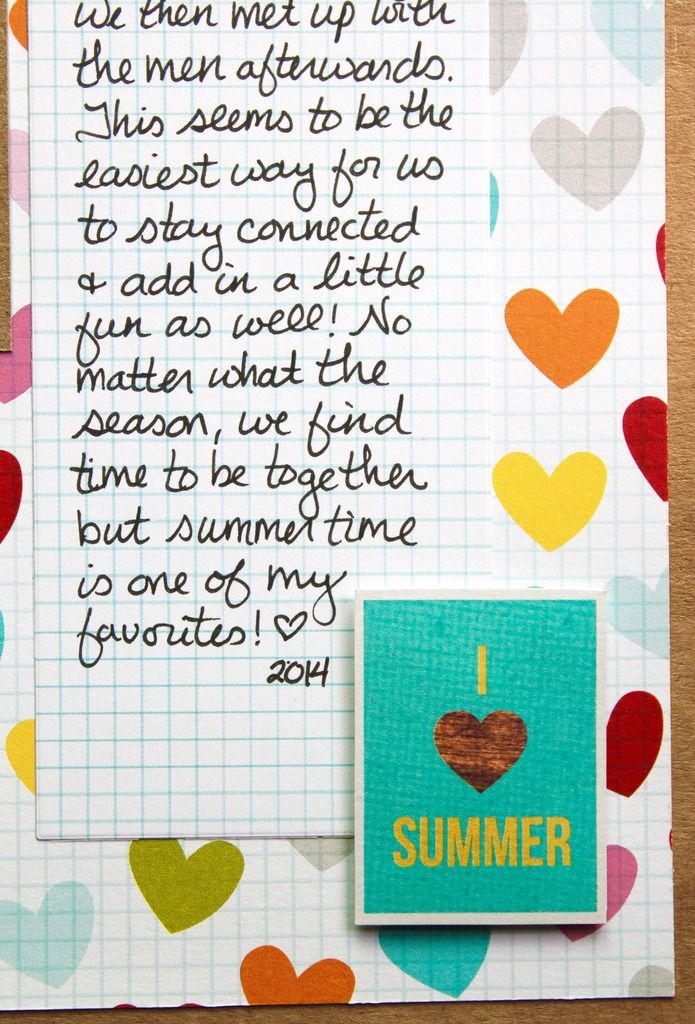 we then met up with
the men afterwards.
This seems to be the
easiest way for us
to stay connected
& add in a little
fun as well! No
matter what the
season, we find
time to be together
but summer time
is one of my
favorites! ♡
2014
I
SUMMER